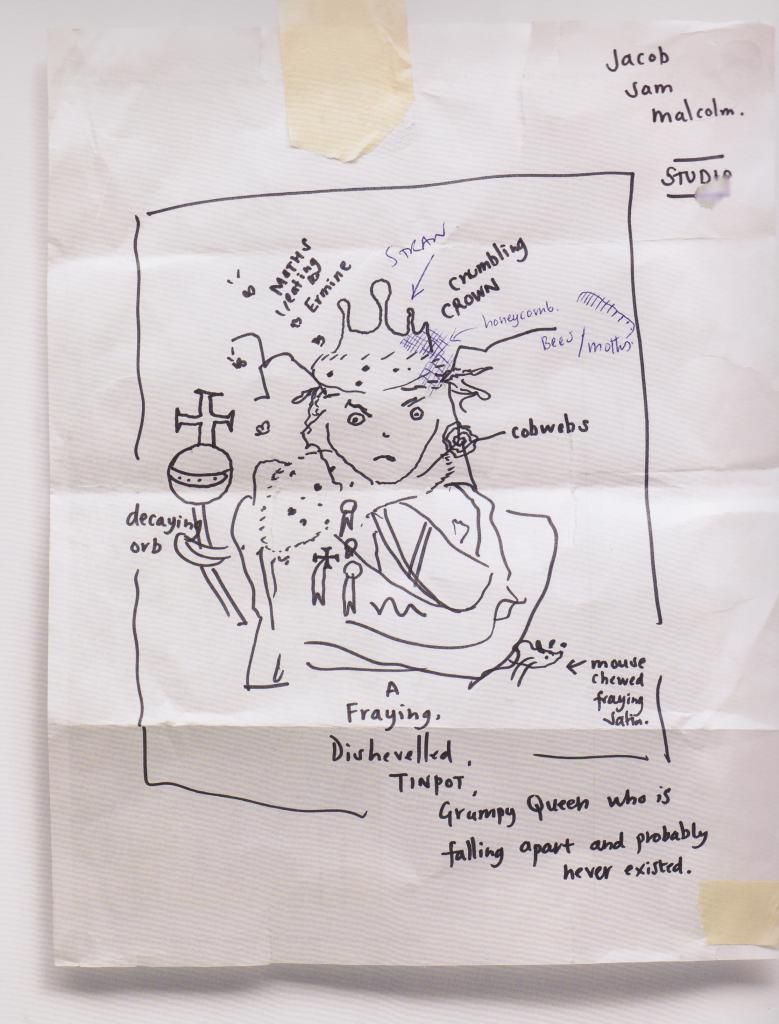 Jacob
Sam
malcolm.
STUDIO
MOTHS
eating
Ermine
STRAW
crumbling
CROWN
honeycomb.
Bees/moths.
cobwebs
decaying
orb
mouse
chewed
fraying
satin.
A
Fraying,
Dishevelled,
TINPOT,
Grumpy Queen who is
falling apart and probably
never existed.